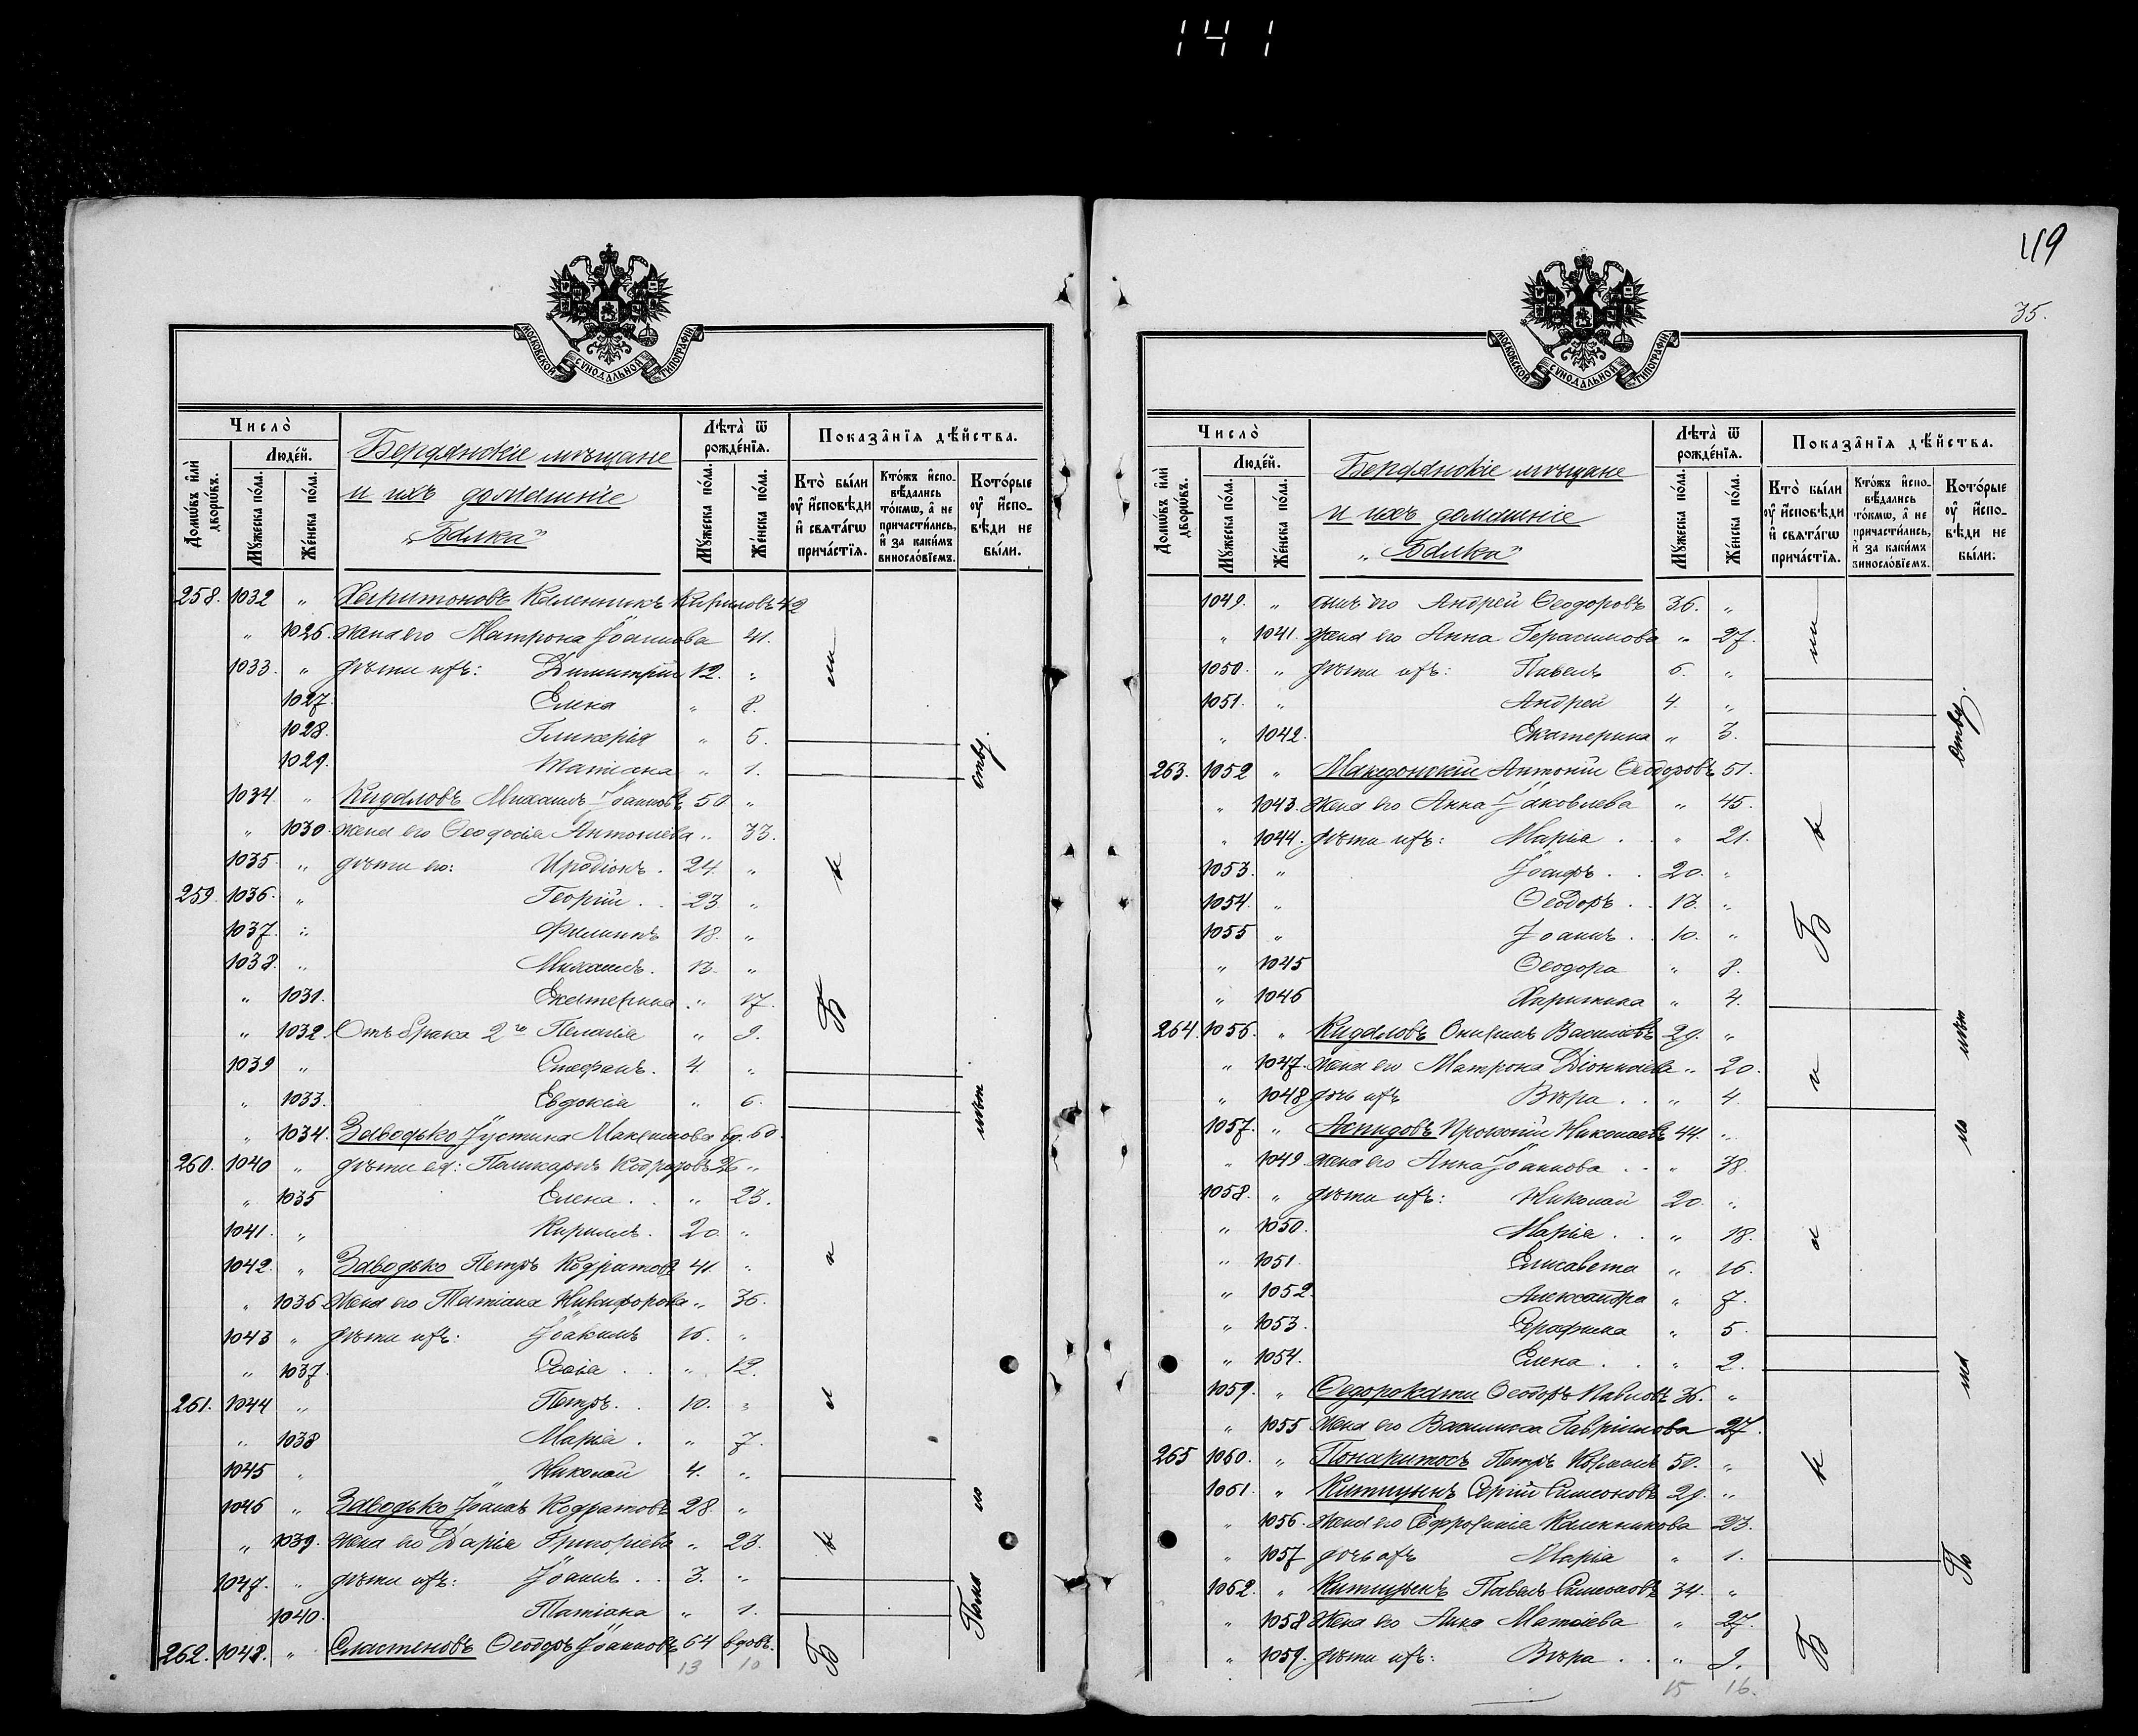 141
МОСКОВСКОЙ СѴНОДАЛЬНОЙ ТИПОГРАФІИ
Число̀
Людє́й.
Домѡ́въ и҆лѝ дворѡ́въ.
Мꙋ́жеска по́ла.
Же́нска по́ла.
Бердянскіе мѣщане
и ихъ домашніе
„Балка"
Лѣта̀ ѿ рожде́нїѧ.
Мꙋ́жеска по́ла.
Же́нска по́ла.
Показа̑нїѧ дѣ́йства.
Кто̀ бы́ли ᲂу҆ и҆сповѣ́ди и҆ свѧта́гѡ прича́стїѧ.
Кто́жъ и҆сповѣ́дались то́кмѡ, а҆ не причасти́лись, и҆ за каки́мъ винословїемъ.
Кото́рые ᲂу҆ и҆сповѣ́ди не бы́ли.
258. 1032 „ Харитоновъ Каленникъ Кириловъ 42
„ 1026. жена его Матрона Іоаннова 41.
1033. „ дѣти ихъ: Димитрій 12. „
1027. Елена „ 8.
1028. Гликерія „ 5.
1029. Татіана „ 1.
1034 „ Кидаловъ Михаилъ Іоанновъ 50 „
„ 1030. жена его Ѳеодосія Антоніева „ 33.
1035. „ дѣти его: Иродіонъ . 24. „
259. 1036. „ Георгій . . 23 „
1037. „ Филиппъ 18. „
1038. „ Михаилъ. 13. „
„ 1031. Екатерина „ 17.
„ 1032. Отъ брака 2го Пелагія „ 9.
1039 „ Стефанъ. 4. „
„ 1033. Евдокія „ 6.
„ 1034. Заводько Іустина Максимова вд. 60.
260. 1040 „ дѣти ея: Поликарпъ Кодратовъ 26 „
„ 1035 Елена . . „ 23.
1041. „ Кириллъ. 20. „
1042. „ Заводько Петръ Кодратовъ 41. „
„ 1036 жена его Татіана Никифорова „ 36.
1043 „ дѣти ихъ: Іоакимъ 16. „
„ 1037. . . „ 12.
261. 1044 „ Петръ. . 10. „
„ 1038 Марія . „ 7.
1045 „ Николай 4. „
1046 „ Заводько Іоаннъ Кодратовъ 28 „
„ 1039. жена его Дарія Григоріева „ 23.
1047. „ дѣти ихъ: Іоаннъ . . 3. „
1040. Татіана „ 1.
262. 1048. „ Сластеновъ Ѳеодоръ Іоанновъ 64 вдовъ.
13 10
49
35.
МОСКОВСКОЙ СѴНОДАЛЬНОЙ ТИПОГРАФІИ
Число̀
Людє́й.
Домѡ́въ и҆лѝ дворѡ́въ.
Мꙋ́жеска по́ла.
Же́нска по́ла.
Бердянскіе мѣщане
и ихъ домашніе
„Балка"
Лѣта̀ ѿ рожде́нїѧ.
Мꙋ́жеска по́ла.
Же́нска по́ла.
Показа̑нїѧ дѣ́йства.
Кто̀ бы́ли ᲂу҆ и҆сповѣ́ди и҆ свѧта́гѡ прича́стїѧ.
Кто́жъ и҆сповѣ́дались то́кмѡ, а҆ не причасти́лись, и҆ за каки́мъ винословїемъ.
Кото́рые ᲂу҆ и҆сповѣ́ди не бы́ли.
1049. „ сынъ его Андрей Ѳеодоровъ 36. „
„ 1041. жена его Анна Герасимова „ 27.
1050. „ дѣти ихъ: Павелъ 6. „
1051. „ Андрей 4. „
„ 1042. Екатерина „ 3.
263. 1052 „ Македонскій Антоній Ѳеодоровъ 51.
„ 1043. жена его Анна Іаковлева „ 45.
„ 1044. дѣти ихъ: Марія . . „ 21.
1053. „ . . 20. „
1054. „ Ѳеодоръ . . 13. „
1055 „ Іоаннъ . . 10. „
„ 1045 Ѳеодора „ 8.
„ 1046 Христина „ 4.
264. 1056. „ Кидаловъ Василіевъ 29. „
„ 1047. жена его Матрона Діонисіева „ 20.
„ 1048 дочь ихъ Вѣра . . „ 4.
1057. „ Аспидовъ Прокопій Николаевъ 44. „
„ 1049 жена его Анна Іоаннова . . „ 38.
1058. „ дѣти ихъ: Николай 20. „
„ 1050. Марія . . „ 18.
„ 1051. Елисавета „ 16.
„ 1052. Александра „ 7.
„ 1053. Серафима „ 5.
„ 1054. Елена . . „ 2.
1059. „ Ѳеодоръ Павловъ 36. „
„ 1055 жена его Василисса Гавриилова 27.
265 1060. „ Петръ 50. „
1061. „ Китицынъ Сергій Симеоновъ 29. „
„ 1056. жена его Евфросинія Каленникова 23.
„ 1057 дочь ихъ Марія „ 1.
1062. „ Китицынъ Павелъ Симеоновъ 34. „
„ 1058 жена его Анна Матѳіева „ 27.
„ 1059. дѣти ихъ: Вѣра . . „ 9.
15 16.